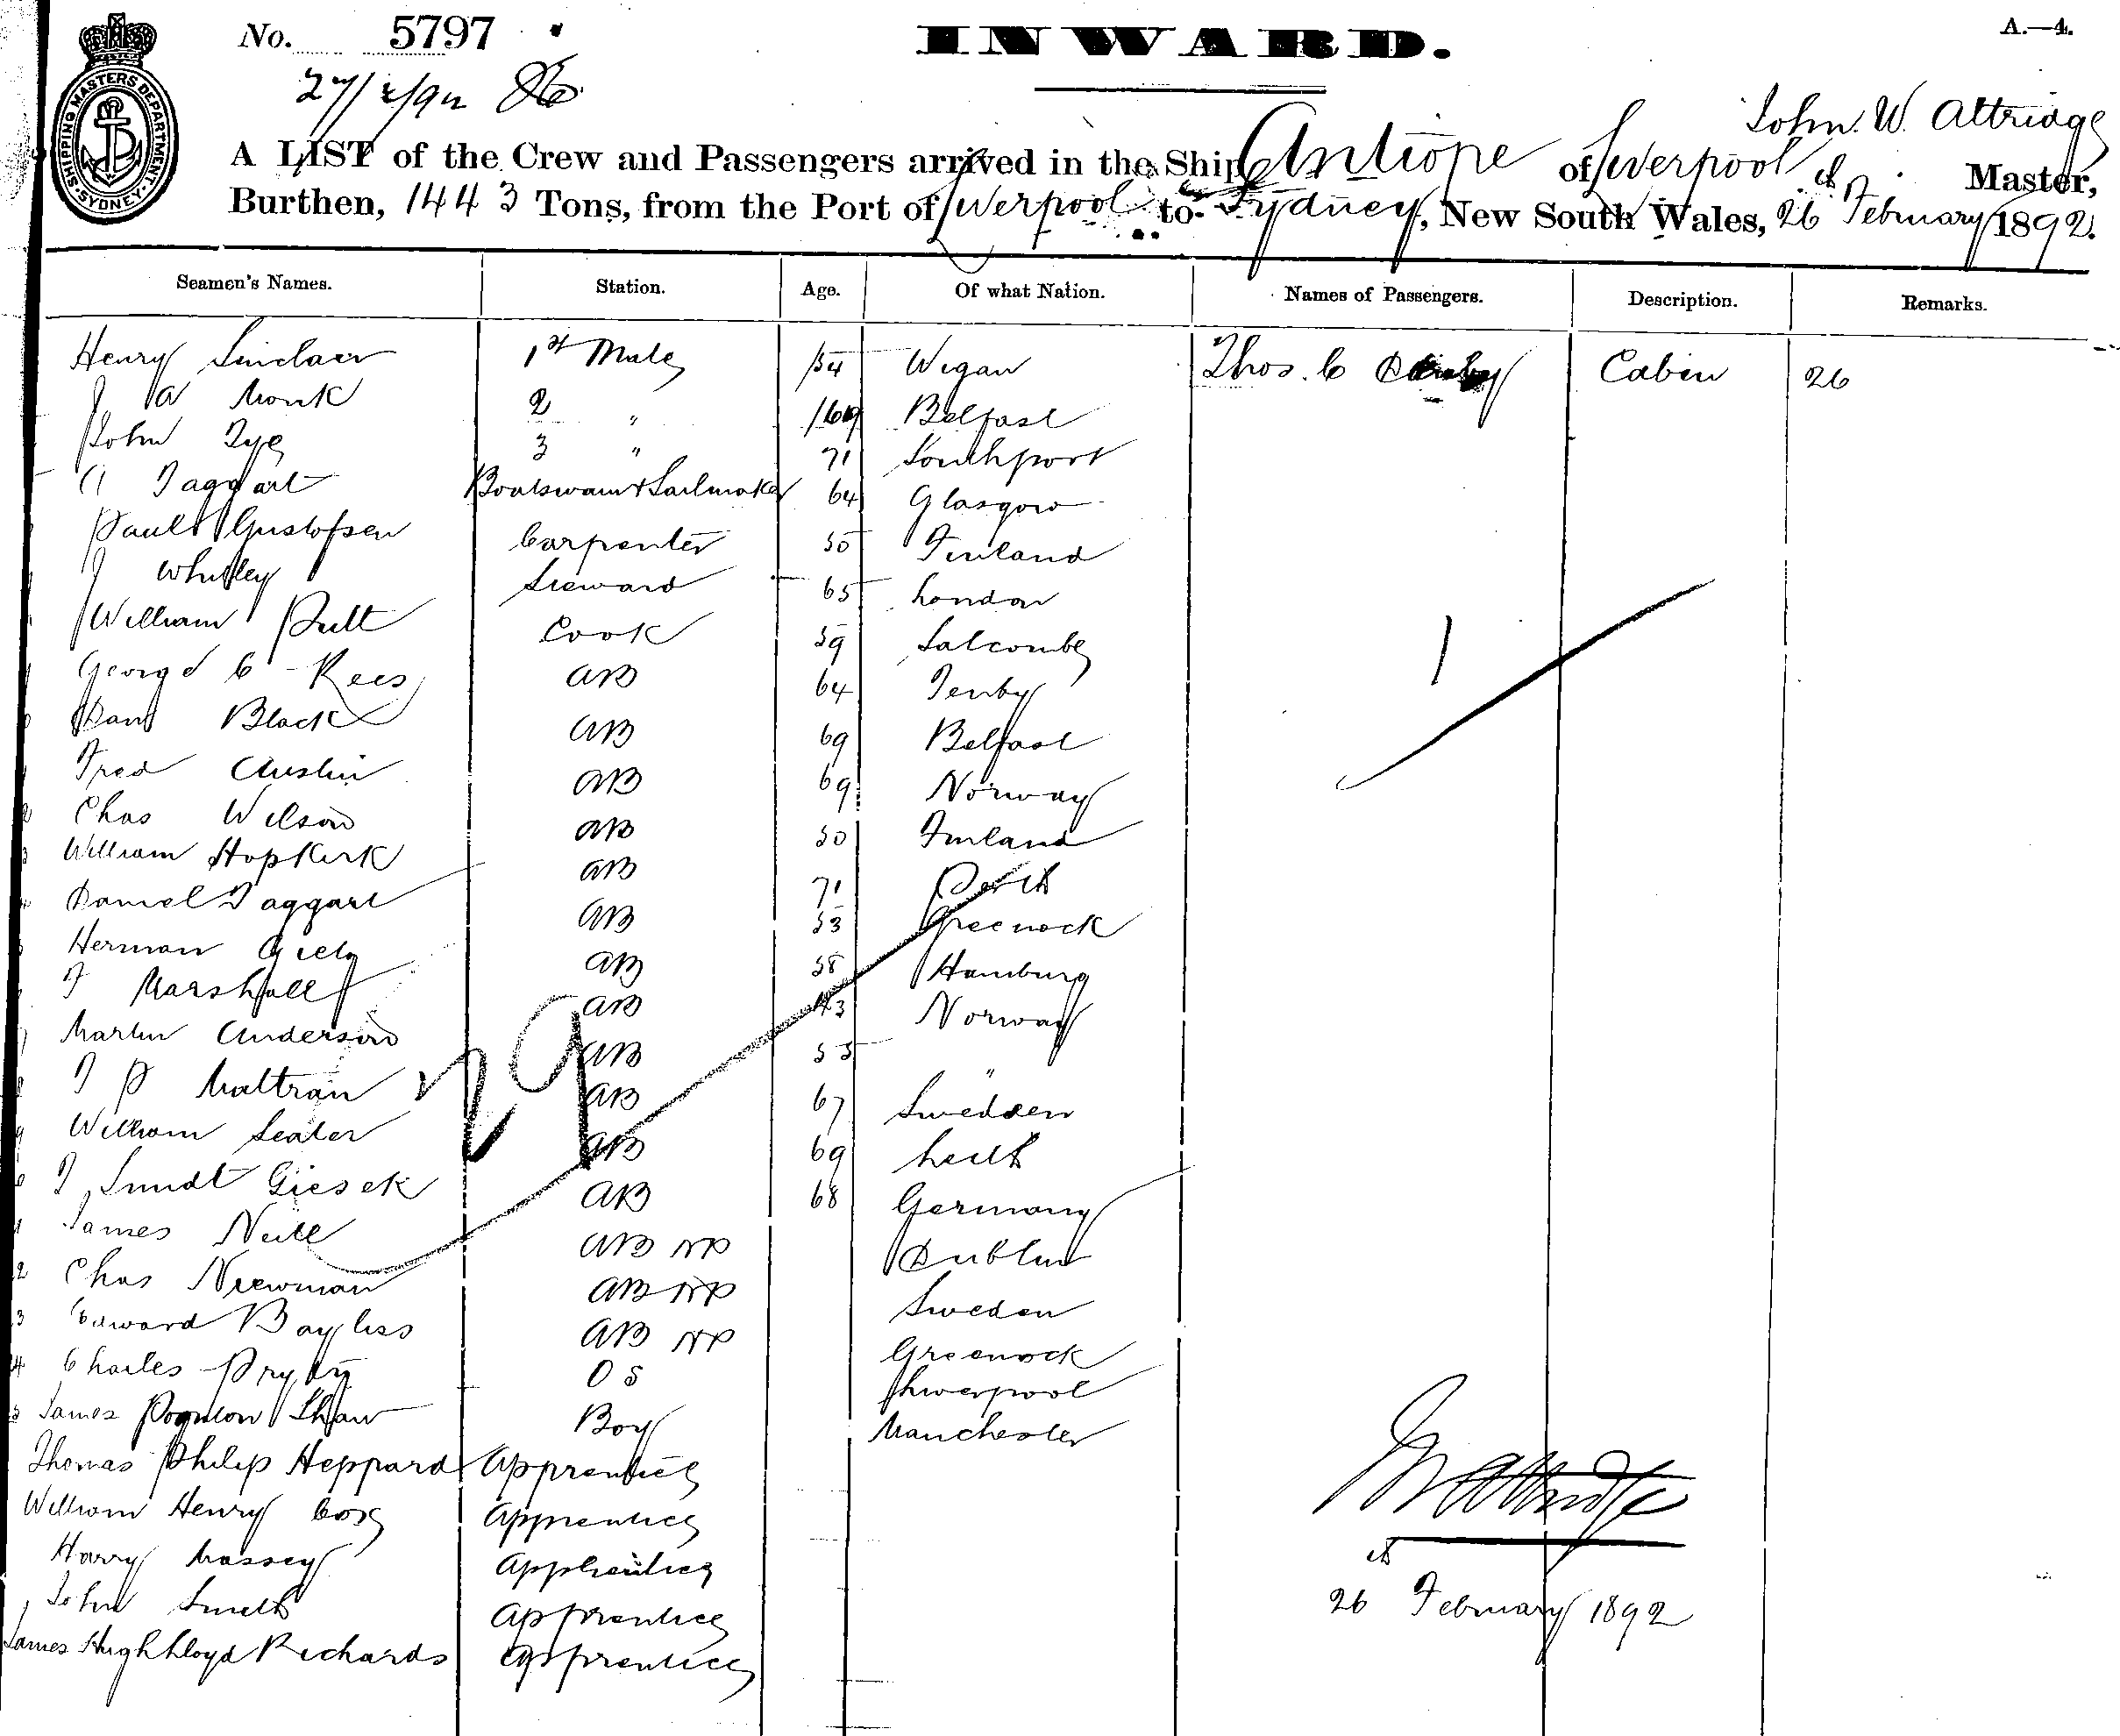 No. 5797
INWARD.
A.—4.
27/2/92
SHIPPING MASTERS DEPARTMENT. SYDNEY
John. W. Attridge
A LIST of the Crew and Passengers arrived in the Ship Antiope of Liverpool Master,
Burthen, 1443 Tons, from the Port of Liverpool to Sydney, New South Wales, 26th February 1892.
Seamen's Names. Station. Age. Of what Nation. Names of Passengers. Description. Remarks.
Henry Sinclair 1st Mate 54 Wigan Thos. C Cabin 26
J A Monk 2 " 69 Belfast
John Tye 3 " 71 Southport
A Taggart Boatswain & Sailmaker 64 Glasgow
Paul Gustofsen Carpenter 50 Finland
J Whitley Steward 65 London
William Putt Cook 59 Salcombe
George C Rees AB 64 Tenby
Black AB 69 Belfast
Fred Austin AB 69 Norway
Chas Wilson AB 50 Finland
William Hopkirk AB 71 Perth
Daniel Taggart AB 53 Greenock
Herman AB 58 Hamburg
J Marshall AB 43 Norway
Martin Anderson AB 55 "
J P Maltran AB 67 Sweden
William Seater AB 69 Leith
J Smidt Giesek AB 68 Germany
James Neill AB NP Dublin
Chas Newman AB NP Sweden
Edward Bayliss AB NP Greenock
Charles OS Liverpool
James Poynton Shaw Boy Manchester
Thomas Philip Heppard Apprentice
William Henry Cox Apprentice
Harry Massey Apprentice
John Smith Apprentice
James Hugh Lloyd Richards Apprentice
29
1
J W Attridge
26th February 1892